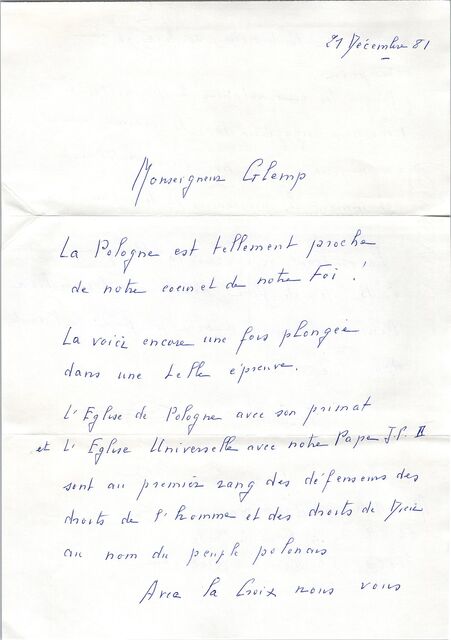 21 Décembre 81
Monseigneur Glemp
La Pologne est tellement proche
de notre coeur et de notre Foi !
La voici encore une fois plongée
dans une telle épreuve.
L'Eglise de Pologne avec son primat
et l'Eglise Universelle avec notre Pape J.P. II
sont au premier rang des défenseurs des
droits de l'homme et des droits de Dieu
au nom du peuple polonais
Avec la Croix nous vous